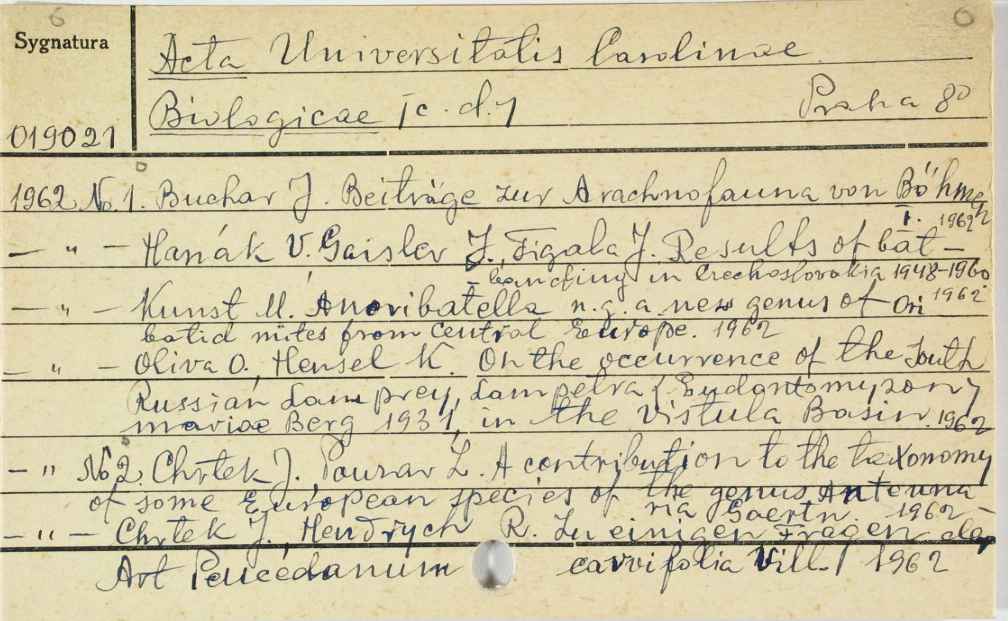 6
6
Sygnatura
Acta Universitatis Carolinae
Biologicae [c.d.] Praha 8°
019021
1962 No 1. Buchar J. Beiträge zur Arachnofauna von Böhmen
I. 1962
— " — Hanák V. Gaisler J., Figala J. Results of bat-
banding in Czechoslovakia 1948-1960
1962
— " — Kunst M. Anoribatella n.g. a new genus of Ori
batid mites from Central Europe. 1962
— " — Oliva O., Hensel K. On the occurrence of the South
Russian Lamprey, Lampetra [Eudontomyzon]
mariae Berg 1931, in the Vistula Basin. 1962
— " No 2. Chrtek J., Pouzar Z. A contribution to the taxonomy
of some European species of the genus Antenna
ria Gaertn. 1962
— " — Chrtek J., Hendrych R. Zu einigen Fragen der
Art Peucedanum carvifolia Vill. 1962